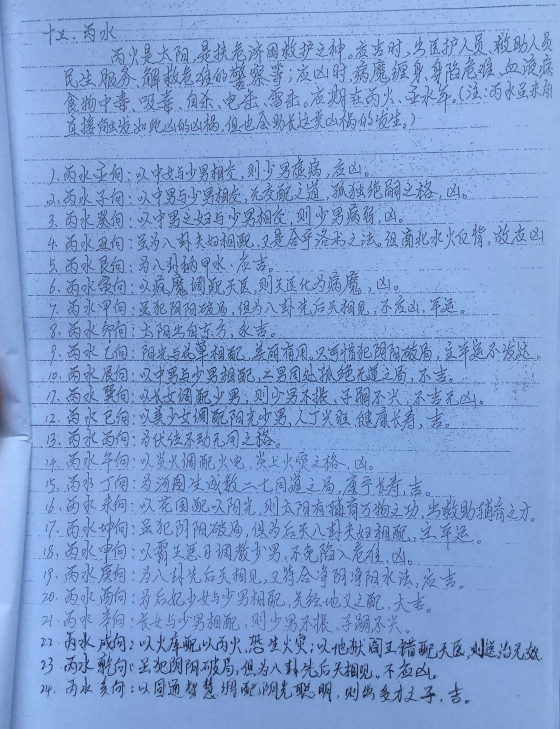 十三、丙水
丙火是太阳,是扶危济困救护之神。应吉时,出医护人员、救助人员
民生服务、解救危难的警察等;应凶时,病魔缠身、身陷危难、血液病
食物中毒、吸毒、自杀、电击、雷击。应期在丙火、壬水年。(注:丙水
直接触发如此凶的凶祸,但也会助长这类凶祸的发生。)
1. 丙水壬向:以中女与少男相交,则少男虚病,应凶。
2. 丙水子向:以中男与少男相交,无交配之道,孤独绝嗣之格,凶。
3. 丙水癸向:以中男之妇与少男相交,则少男病弱,凶。
4. 丙水丑向:虽为八卦夫妇相配,又是合乎洛书之法。但南北水火仅背,故应凶
5. 丙水艮向:为八卦纳甲水,应吉。
6. 丙水寅向:以病魔调配天医,则天医化为病魔,凶。
7. 丙水甲向:虽犯阴阳破局,但为八卦先后天相见,不应凶,平运。
8. 丙水卯向:太阳出自东方,永吉。
9. 丙水乙向:阳光与花草相配,美丽有用。只可惜犯阴阳破局,主平运不发达。
10. 丙水辰向:以中男与少男相配,二男同处孤绝无道之局,不吉。
11. 丙水巽向:以长女调配少男,则少男不振,子嗣不兴,不吉无凶。
12. 丙水巳向:以美少女调配阳光少男,人丁兴旺,健康长寿,吉。
13. 丙水丙向:为伏位不动无用之格。
14. 丙水午向:以炎火调配火电,炎上火灾之格,凶。
15. 丙水丁向:为河图生成数二七同道之局,康宁长寿,吉。
16. 丙水未向:以花园配以阳光,则太阳有哺育万物之功,出救助辅育之才。
17. 丙水坤向:虽犯阴阳破局,但为后天八卦夫妇相配,主平运。
18. 丙水申向:以霸王恶日调教少男,不免陷入危难,凶。
19. 丙水庚向:为八卦先后天相见,又符合净阴净阳水法,应吉。
20. 丙水酉向:为后妃少女与少男相配,天经地义之配,大吉。
21. 丙水辛向:长女与少男相配,则少男不振,子嗣不兴。
22. 丙水戌向:以火库配以丙火,恐生火灾;以地狱阎王错配天医,则送治无效
23. 丙水乾向:虽犯阴阳破局,但为八卦先后天相见。不应凶。
24. 丙水亥向:以圆通智慧调配阳光聪明,则出多才文子,吉。